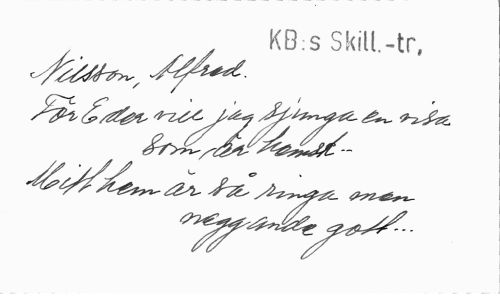 KB:s Skill.-tr,
Nilsson, Alfred.
För Eder vill jag sjunga en visa
som är hemsk –
Mitt hem är så ringa men
naggande gott...